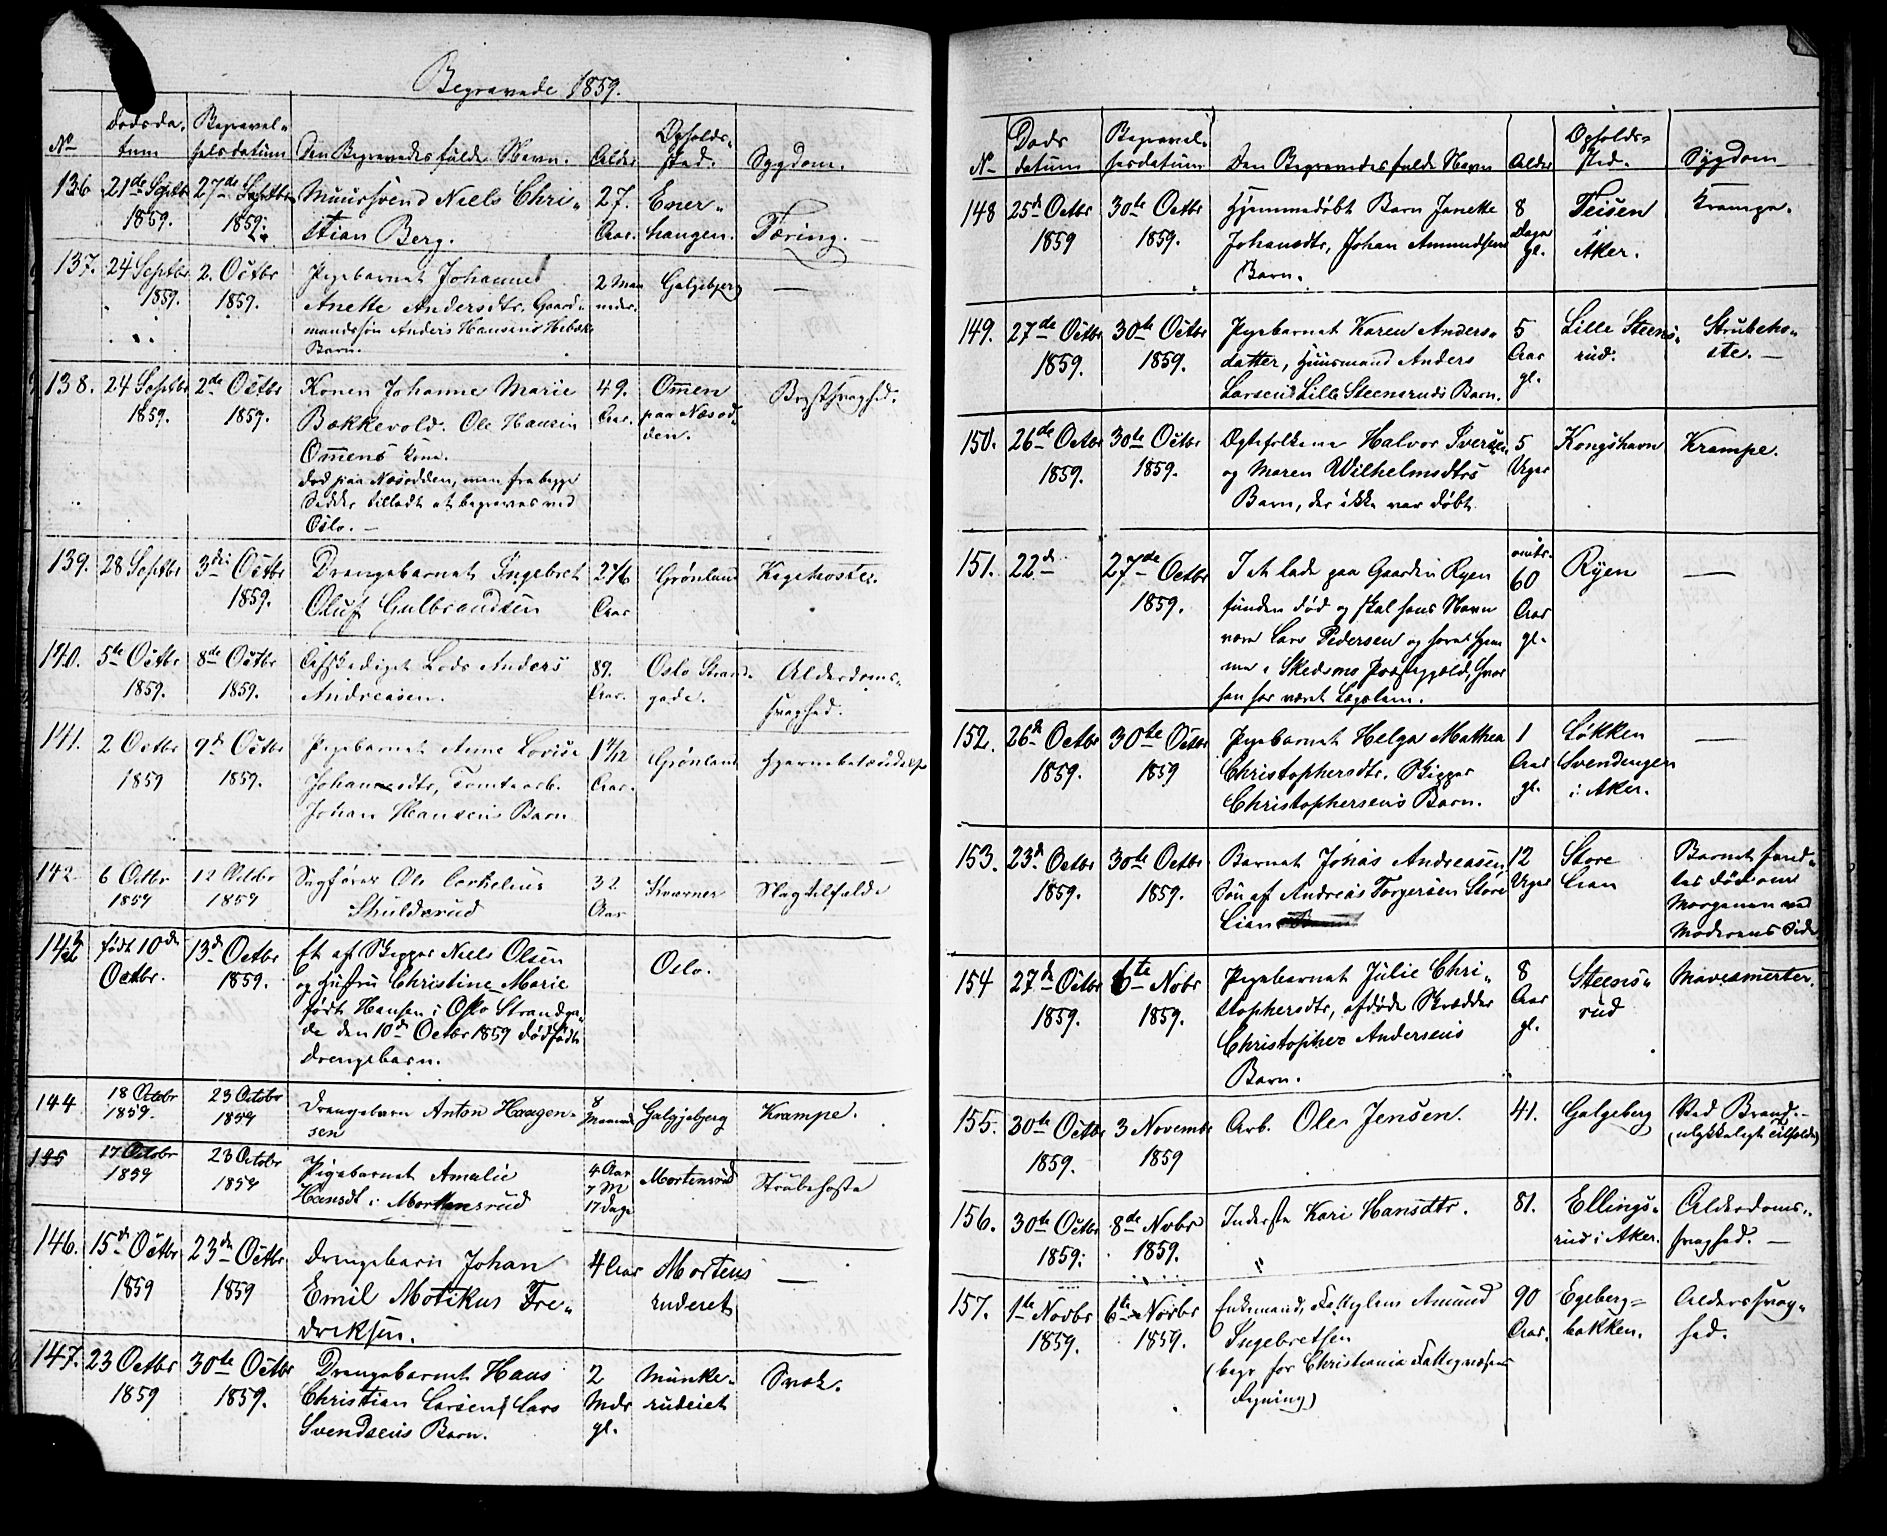 Begravede 1859.
No
Dødsda„
tum
Begravel„
sesdatum
Den Begravedes fulde Navn.
Alder
Opholds„
sted.
Sygdom.
136 21de Septbr 1859. 27de Septbr 1859. Muursvend Niels Chri„
stian Berg. 27. Aar. Ener„
haugen. Tæring. —
137. 24 Septbr 1859. 2. Octbr 1859. Pigebarnet Johanne
Anette Andersdtr. Gaard„
mandssøn Anders Hansens
Barn. 2 Maa
neder. Galgebjerg —
138. 24 Septbr 1859. 2de Octbr 1859. Konen Johanne Marie
Bakkevold. Ole Hansen
Ommens Kone.
død paa Næsodden, men fra begge
Steder tilladt at begraves ved
Oslo. — 49. Aar. Ommen
paa Næsod„
den. Brystsvaghed.
139. 28 Septbr 3die Octbr 1859. Drengebarnet Ingebret
Oluf Gulbrandsen 2 1/6 Aar Grønland Kighoste.
140. 5te Octbr 1859. 8de Octbr 1859. Afskediget Lods Anders
Andreasen. 89. Aar. Oslo Strand„
gade. Alderdoms„
svaghed.
141. 2 Octbr 1859 9de Octbr 1859. Pigebarnet Anne Lovise
Johannesdtr, Tomtearb.
Johan Hansens Barn Aar. Grønland Hjernebetændelse
142 6 Octbr 1859 12 Octobr 1859 Sagfører Ole Cornelius
Skuldsrud 32 Aar Kværner Slagtilfælde
143 født 10de
Octbr. 13de Octbr 1859. Et af Skipper Niels Olsen
og Hustru Christine Marie
født Hansen i Oslo Strandga„
de den 10de Octbr 1859 dødfødt
Drengebarn. Oslo.
144 18 Octobr 1859. 23 Octobr 1859 Drengebarn Anton Haagen„
sen 8 Maaned Galgjebjerg Krampe.
145 17 Octobr 1859 23 Octobr 1859 Pigebarnet Amalie
Hansdt i Mortensrud 4 Aar
7 M
17 Dage Mortensrud Strubehoste
146. 15de Octbr 1859 23de Octbr 1859 Drengebarn Johan
Emil Motikus Fre„
driksen. 4 Aar Mortens
ruderet —
147. 23 Octbr 1859 30te Octbr 1859. Drengebarnet Hans
Christian Larsen, Lars
Svendsens Barn. 2 Mdr gl. Munke„
rudeiet Svak.
No
Døds
datum
Begravel„
sesdatum
Den Begravedes fulde Navn
Alder
Opholds„
sted.
Sygdom
148 25de Octbr 1859 30te Octbr 1859. Hjemmedøbt Barn Janette
Johansdtr, Johan Amundsens
Barn. 8 Dage gl. Teisen
Aker. Krampe.
149. 27de Octbr 1859. 30te Octbr 1859. Pigebarnet Karen Anders„
datter, Huusmand Anders
Larsens Lille Steensruds Barn. 5 Aar gl. Lille Steens„
rud. Strubeho„
ste. —
150. 26de Octbr 1859. 30te Octbr 1859. Ægtefolkene Halvor Iversen
og Maren Wilhelmsdtrs
Barn, der ikke var døbt. 5 Uger Kongshavn Krampe.
151. 22de 27de Octbr 1859. I et lade paa Gaarden Ryen
funden død og skal hans Navn
være Lars Pedersen og hørt hjem
me i Skedsmo Præstegjæld, hvor
han har været Lægslem. omtr.
60 Aar gl. Ryen —
152. 26de Octbr 1859. 30te Octbr 1859 Pigebarnet Helga Mathea
Christophersdtr, Skipper
Christophersens Barn. 1 Aar gl. Løkken
Svendengen
i Aker. —
153. 23de Octbr 1859. 30te Octbr 1859. Barnet Johás Andreasen
Søn af Andreas Torgersen Store
Lian 12 Uger Store
Lian Barnet fand„
tes død om
Morgenen ved
Moderens Side
154 27de Octbr 1859. 6te Nobr 1859. Pigebarnet Julie Chri„
stophersdtr, afdøde Skrædder
Christopher Andersens
Barn. 8 Aar gl. Steens„
rud Mavesmerter.
155. 30te Octbr 1859. 3 Novembr 1859 Arb. Ole Jensen. 41. Galgeberg Ved Brand. —
(ulykkeligt Tilfælde)
156. 30te Octbr 1859. 8de Nobr 1859. Inderste Kari Hansdtr.
„ 81. Ellings„
rud i Aker. Alderdoms„
svaghed. —
157. 1ste Novbr 1859. 6te Novbr 1859. Enkemand, Fattiglem Amund
Ingebretsen
(begr. for Christiania Fattigvæsens
Regning) 90 Aar. Egeberg=
bakken. Aldersvag„
hed.